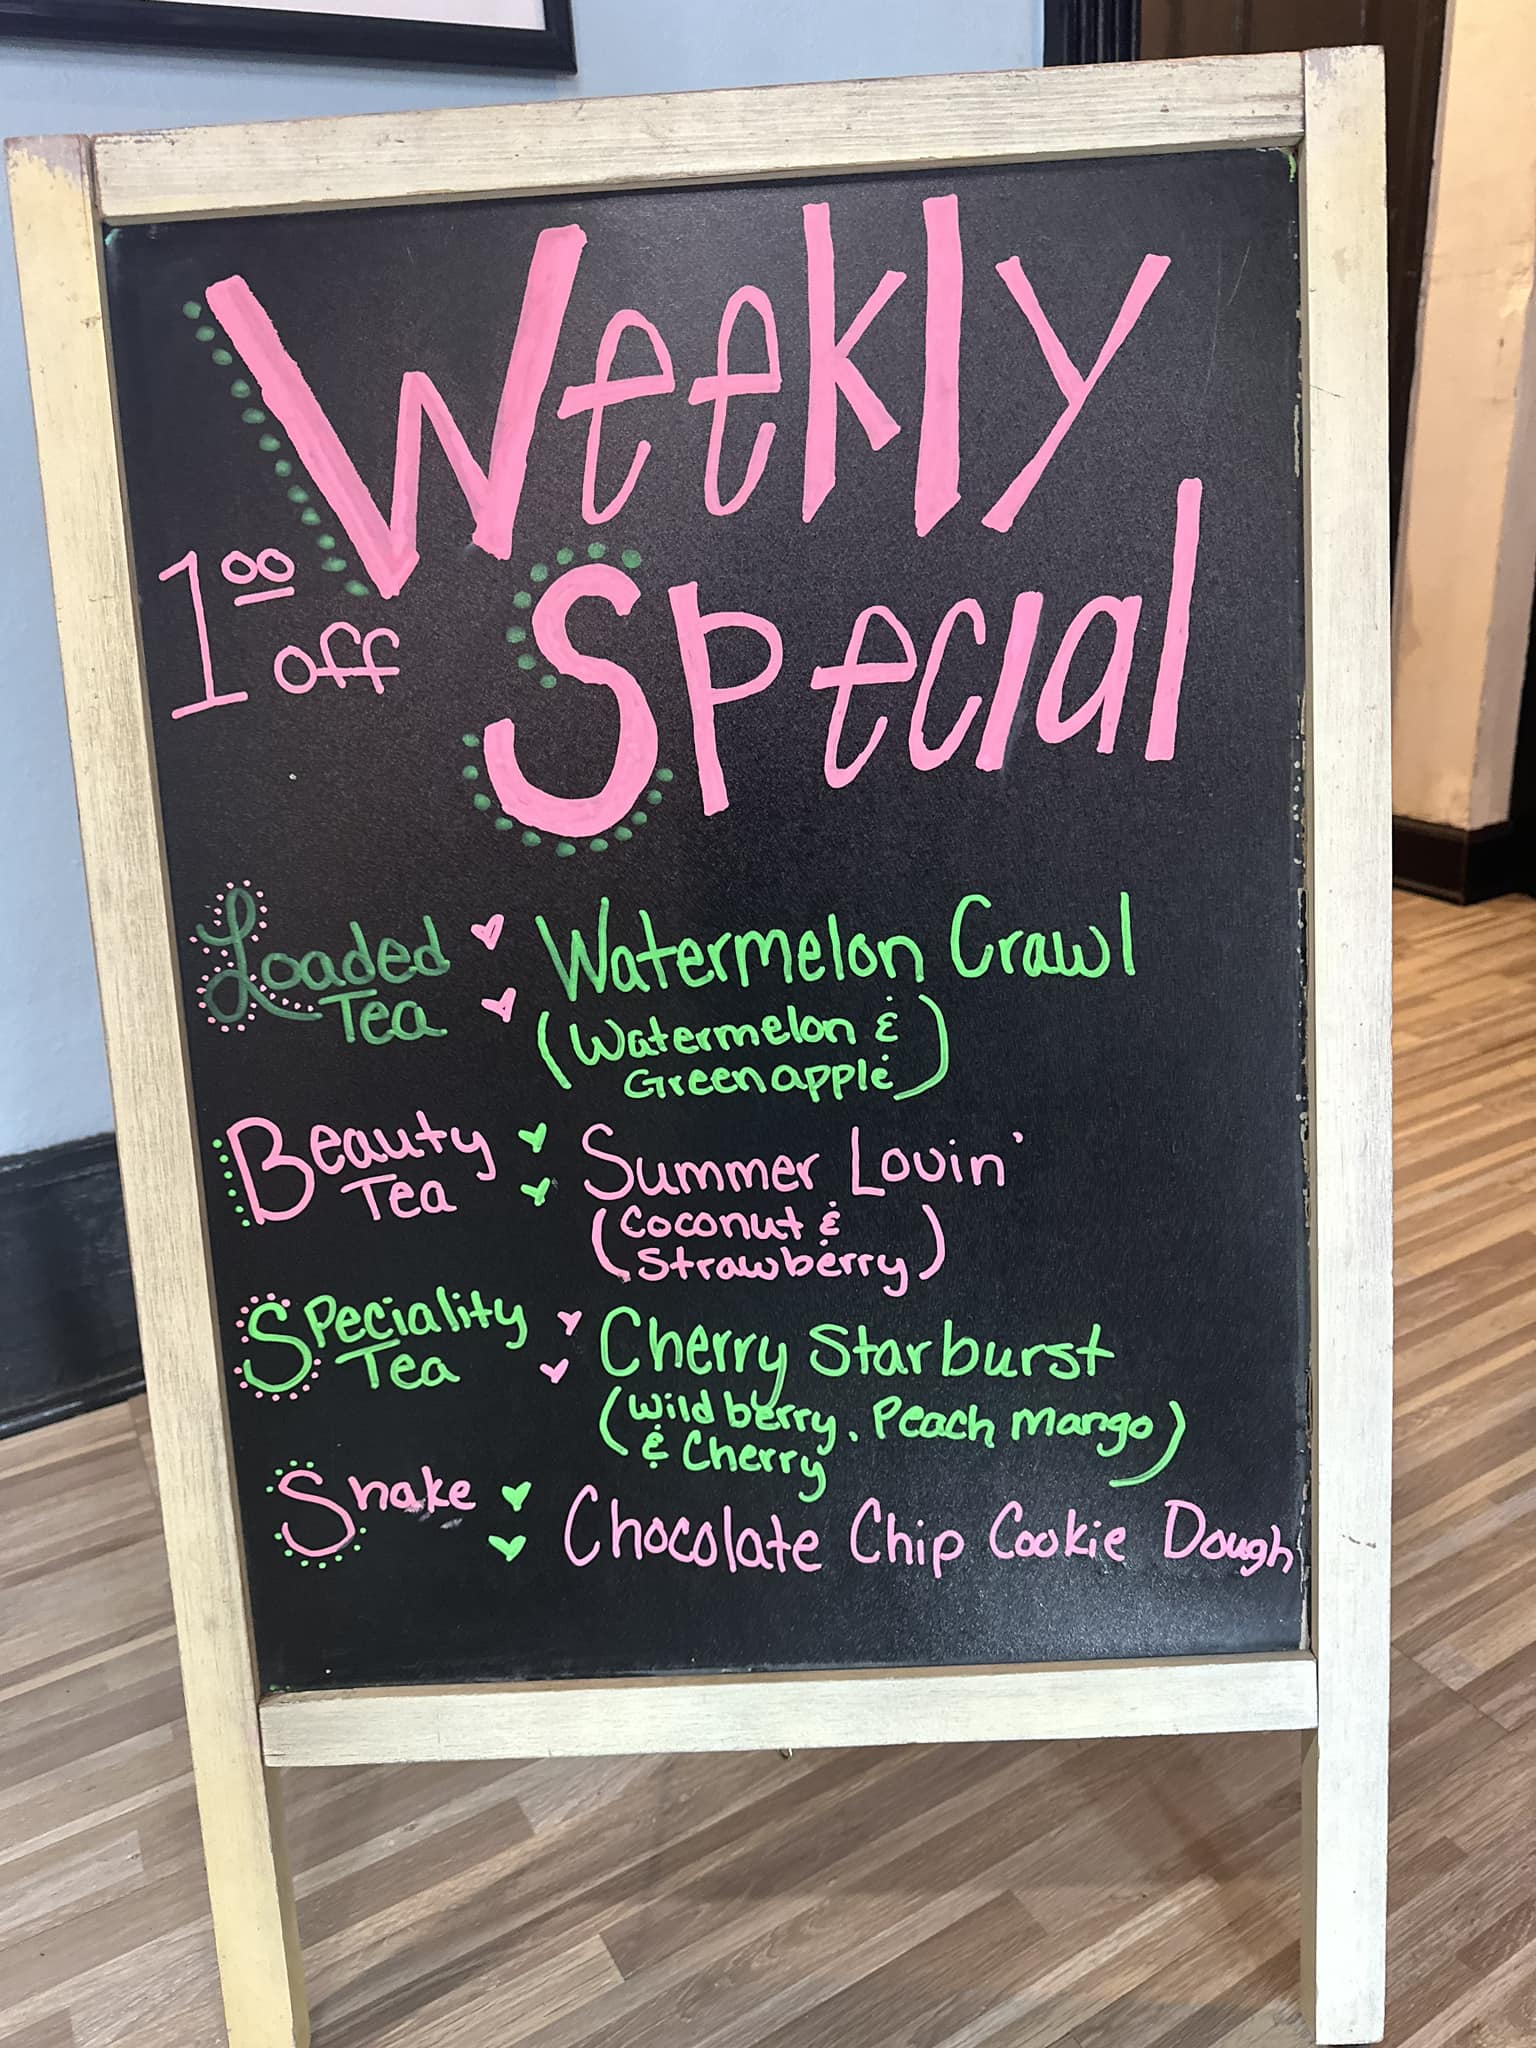 Weekly
1 00 off
Special
Loaded Tea Watermelon Crawl
(Watermelon &
Green apple)
Beauty Tea Summer Lovin'
(Coconut &
Strawberry)
Speciality Tea Cherry Starburst
(Wild berry, Peach Mango
& Cherry)
Shake Chocolate Chip Cookie Dough